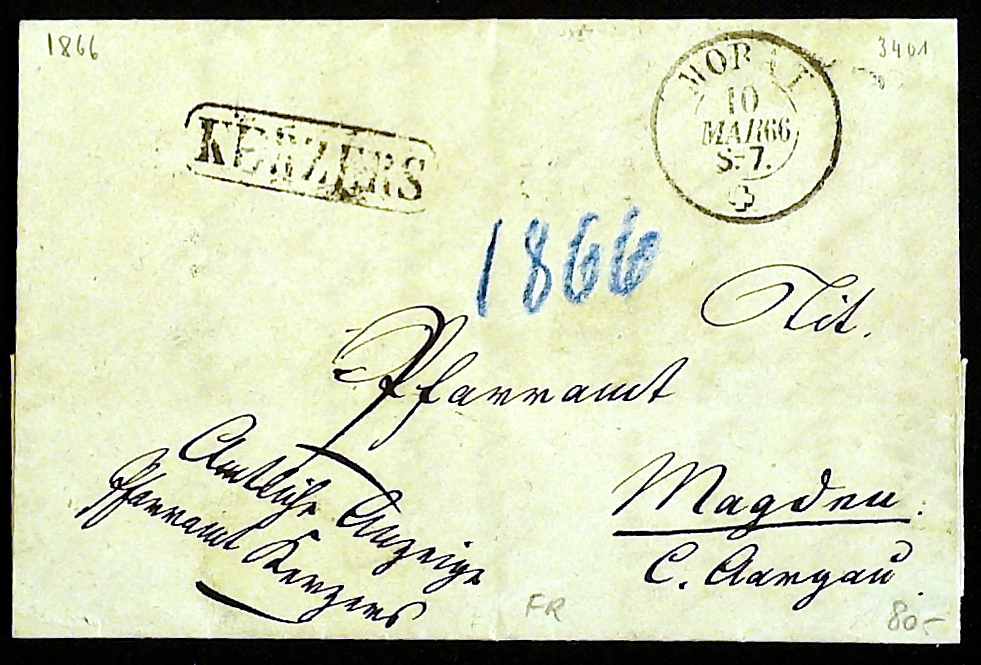 1866
3401
KERZERS
MORAT
10
MAR 66
S-7.
1866
Tit.
Pfarramt
Amtliche Anzeige
Pfarramt Kerzers
Magden.
C. Aargau
FR
80.-